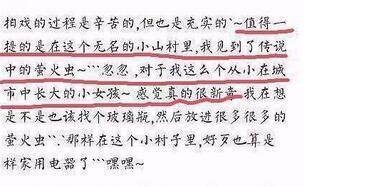 拍戏的过程是辛苦的,但也是充实的`~值得一
提的是在这个无名的小山村里,我见到了传说
中的萤火虫~```忽忽,对于我这么个从小在城
市中长大的小女孩~ 感觉真的很新奇 我在想
是不是也该找个玻璃瓶,然后放进很多很多的
萤火虫``.`那样在这个小村子里,好歹也算是
样家用电器了```嘿嘿~